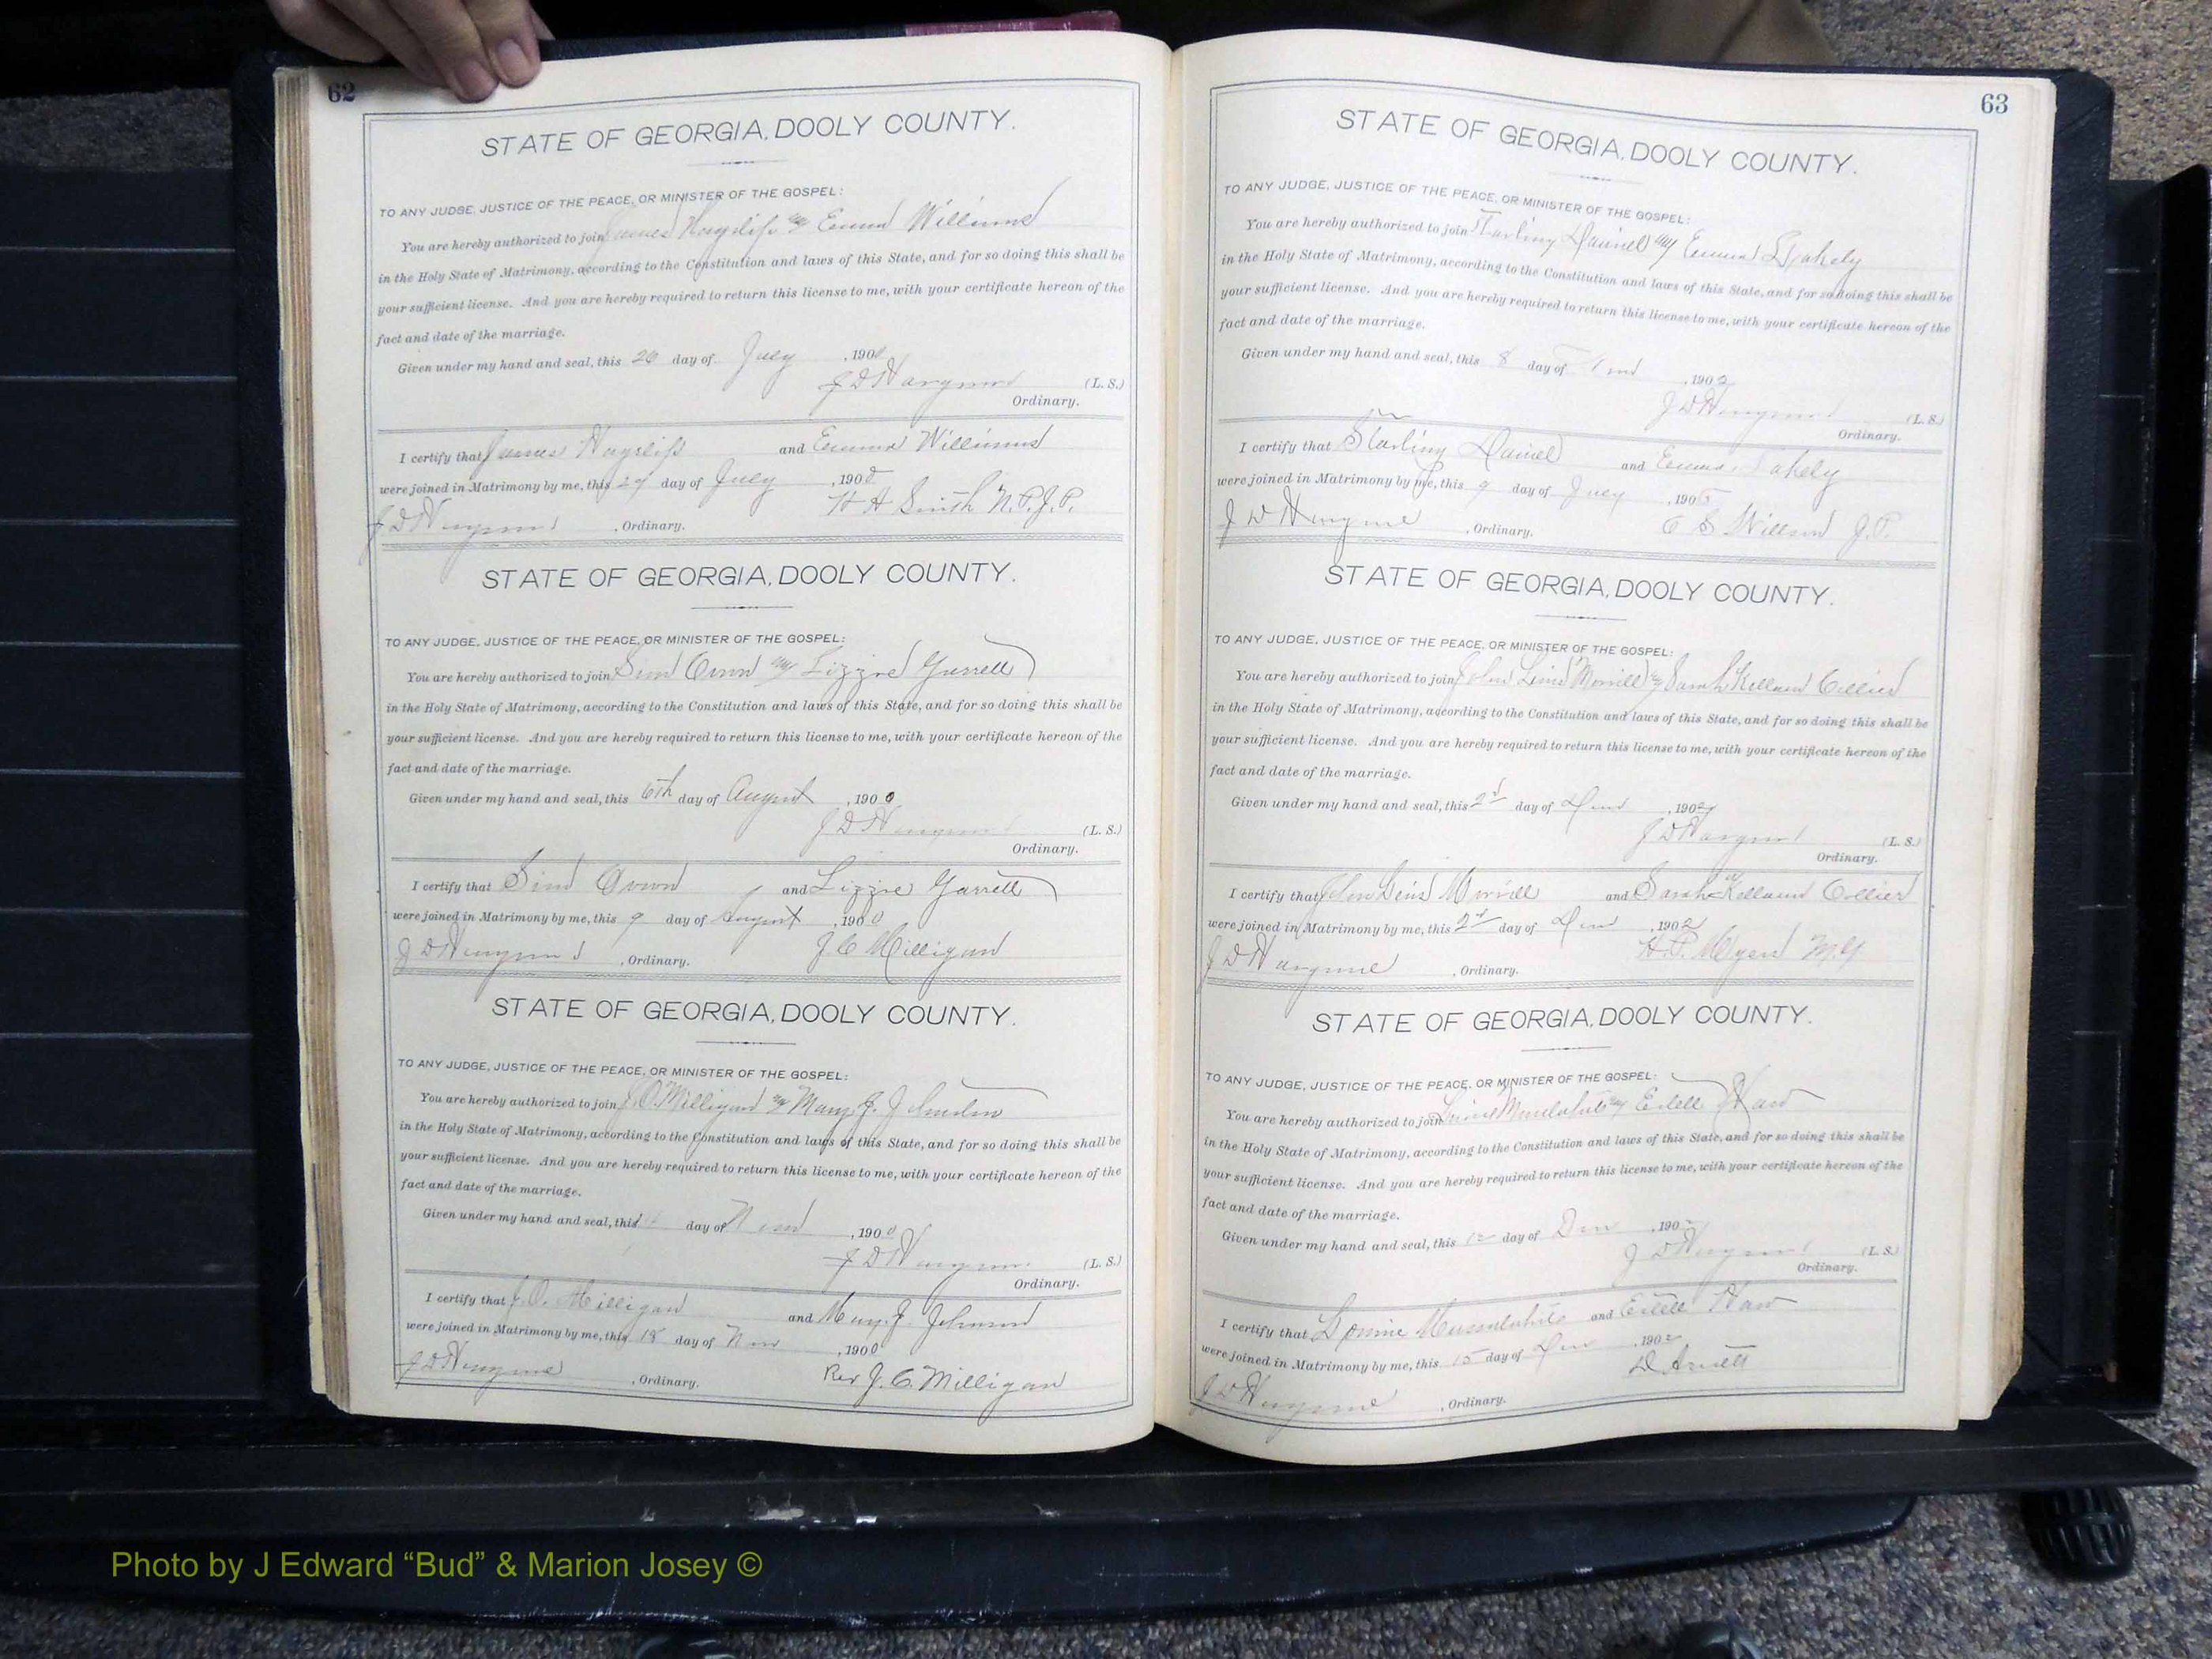 62
STATE OF GEORGIA, DOOLY COUNTY.
TO ANY JUDGE, JUSTICE OF THE PEACE, OR MINISTER OF THE GOSPEL:
You are hereby authorized to join James Hayslip & Emma Williams
in the Holy State of Matrimony, according to the Constitution and laws of this State, and for so doing this shall be
your sufficient license. And you are hereby required to return this license to me, with your certificate hereon of the
fact and date of the marriage.
Given under my hand and seal, this 26 day of July, 1900
J D Hargrove (L. S.)
Ordinary.
I certify that James Hayslip and Emma Williams
were joined in Matrimony by me, this 29 day of July, 1900
H H Smith N.P.J.P.
J D Hargrove, Ordinary.
STATE OF GEORGIA, DOOLY COUNTY.
TO ANY JUDGE, JUSTICE OF THE PEACE, OR MINISTER OF THE GOSPEL:
You are hereby authorized to join & Lizzie Garrell
in the Holy State of Matrimony, according to the Constitution and laws of this State, and for so doing this shall be
your sufficient license. And you are hereby required to return this license to me, with your certificate hereon of the
fact and date of the marriage.
Given under my hand and seal, this 6th day of August, 1900
J D Hargrove (L. S.)
Ordinary.
I certify that and Lizzie Garrell
were joined in Matrimony by me, this 9 day of August, 1900
J D Hargrove, Ordinary. J C Milligan
STATE OF GEORGIA, DOOLY COUNTY.
TO ANY JUDGE, JUSTICE OF THE PEACE, OR MINISTER OF THE GOSPEL:
You are hereby authorized to join J. O. Milligan & Mary J. Johnson
in the Holy State of Matrimony, according to the Constitution and laws of this State, and for so doing this shall be
your sufficient license. And you are hereby required to return this license to me, with your certificate hereon of the
fact and date of the marriage.
Given under my hand and seal, this day of Nov, 1900
J D Hargrove (L. S.)
Ordinary.
I certify that J. O. Milligan and Mary J. Johnson
were joined in Matrimony by me, this 18 day of Nov, 1900
J D Hargrove, Ordinary. Rev J. C. Milligan
63
STATE OF GEORGIA, DOOLY COUNTY.
TO ANY JUDGE, JUSTICE OF THE PEACE, OR MINISTER OF THE GOSPEL:
You are hereby authorized to join Starling Daniel & Emma
in the Holy State of Matrimony, according to the Constitution and laws of this State, and for so doing this shall be
your sufficient license. And you are hereby required to return this license to me, with your certificate hereon of the
fact and date of the marriage.
Given under my hand and seal, this 8 day of, 190
J D Hargrove (L. S.)
Ordinary.
I certify that Starling Daniel and Emma
were joined in Matrimony by me, this 9 day of July, 190
J D Hargrove, Ordinary. J.P.
STATE OF GEORGIA, DOOLY COUNTY.
TO ANY JUDGE, JUSTICE OF THE PEACE, OR MINISTER OF THE GOSPEL:
You are hereby authorized to join John Morrill & Sarah Collier
in the Holy State of Matrimony, according to the Constitution and laws of this State, and for so doing this shall be
your sufficient license. And you are hereby required to return this license to me, with your certificate hereon of the
fact and date of the marriage.
Given under my hand and seal, this 2d day of, 1902
J D Hargrove (L. S.)
Ordinary.
I certify that John Morrill and Sarah Collier
were joined in Matrimony by me, this 2d day of, 1902
J D Hargrove, Ordinary. H. P. Myers M.G
STATE OF GEORGIA, DOOLY COUNTY.
TO ANY JUDGE, JUSTICE OF THE PEACE, OR MINISTER OF THE GOSPEL:
You are hereby authorized to join
in the Holy State of Matrimony, according to the Constitution and laws of this State, and for so doing this shall be
your sufficient license. And you are hereby required to return this license to me, with your certificate hereon of the
fact and date of the marriage.
Given under my hand and seal, this 12 day of, 190
J D Hargrove (L. S.)
Ordinary.
I certify that and
were joined in Matrimony by me, this 15 day of, 1902
J D Hargrove, Ordinary.
Photo by J Edward “Bud” & Marion Josey ©